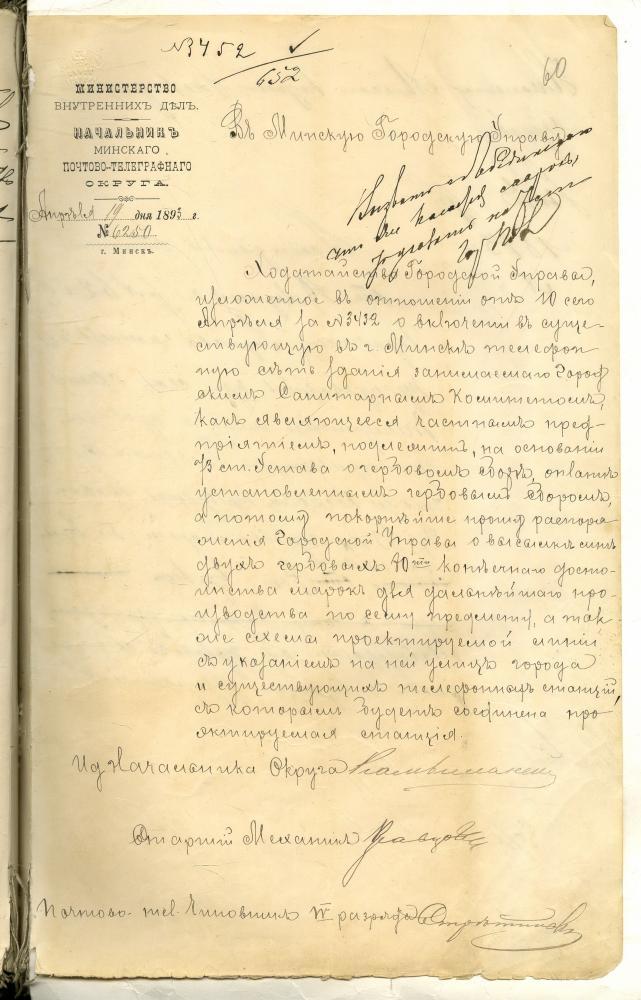 № 3452
632
60
МИНИСТЕРСТВО
ВНУТРЕННИХЪ ДѢЛЪ.
НАЧАЛЬНИКЪ
МИНСКАГО
ПОЧТОВО-ТЕЛЕГРАФНАГО
ОКРУГА.
Апрѣля 19 дня 1895 г.
№ 6250
г. Минскъ.
Въ Минскую Городскую Управу
Ходатайство Городской Управы,
изложенное въ отношеніи отъ 10 сего
Апрѣля за № 3432 о включеніи въ суще-
ствующую въ г. Минскѣ телефон
ную сѣть зданія занимаемаго Город
скимъ Санитарнымъ Комитетомъ,
какъ являющееся частнымъ пред-
пріятіемъ, подлежитъ, на основаніи
73 ст. Устава о гербовомъ сборѣ, оплатѣ
установленнымъ гербовымъ сборомъ,
а потому покорнѣйше прошу распоря
женія Городской Управы о высылкѣ мнѣ
двухъ гербовыхъ 80ти копѣечнаго досто-
инства марокъ для дальнѣйшаго про-
изводства по сему предмету, а так-
же схемы проектируемой линіи
съ указаніемъ на ней улицъ города
и существующихъ телефонныхъ станцій,
съ которыми будетъ соединена про
эктируемая станція.
Ид Начальника Округа
Старшій Механикъ
Почтово-тел. Чиновникъ VI разряда